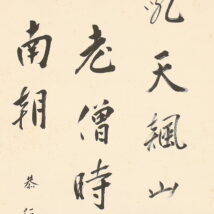 天飄山
老僧時
南朝
恭